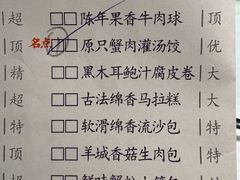 超 □□陈年果香牛肉球 顶
顶 名点 □□原只蟹肉灌汤饺 优
精 □□黑木耳鲍汁腐皮卷 大
超 □□古法绵香马拉糕 大
特 □□软滑绵香流沙包 特
顶 □□羊城香菇生肉包 特
超 □□鲜味蟹